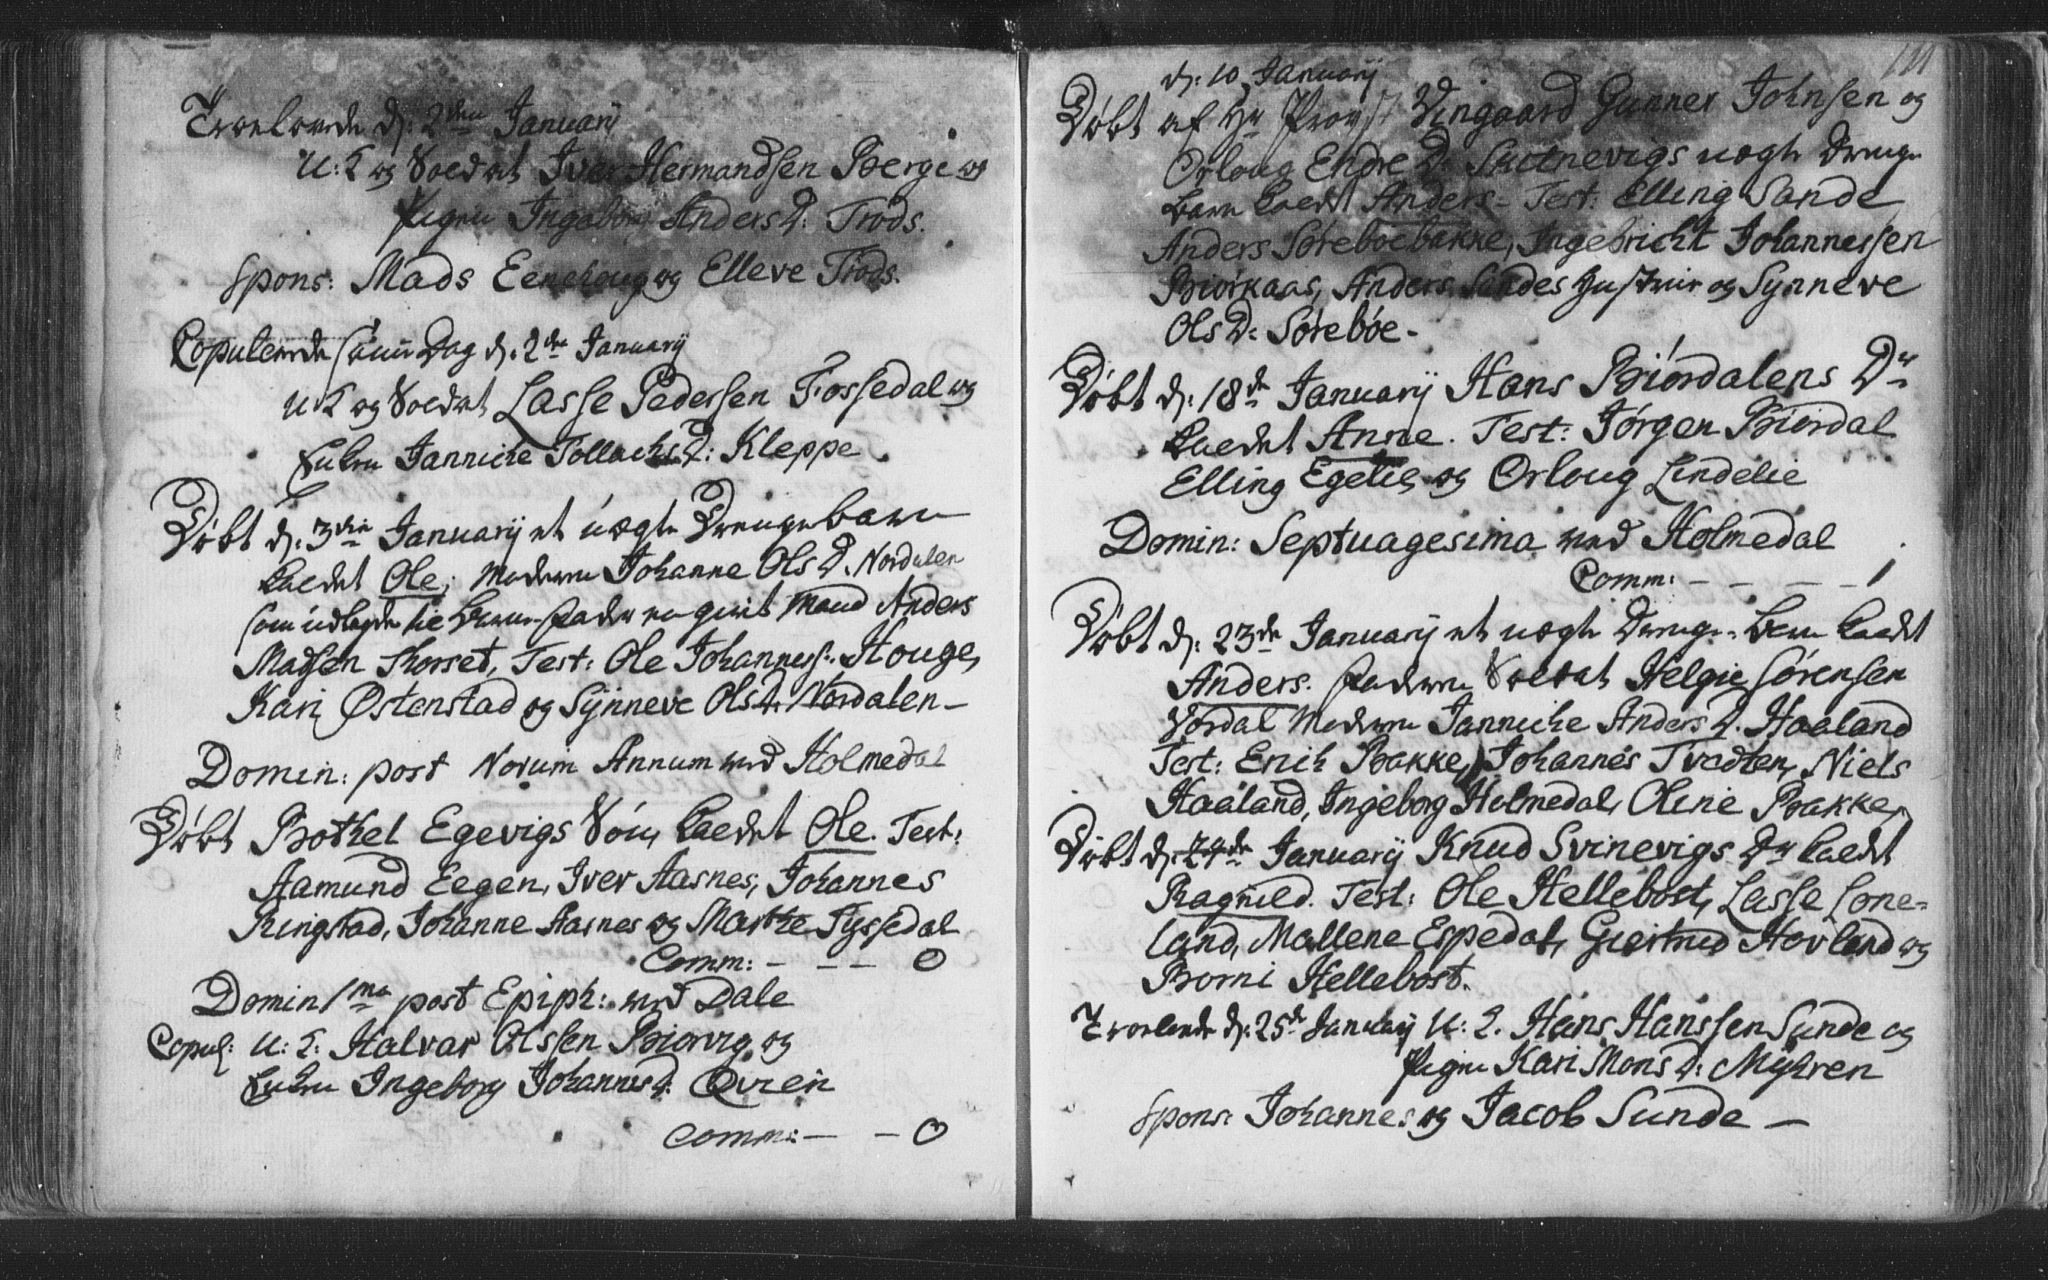 Troelovede d: 2den Januarij
U: K og Soldat Iver Hermandsen Berge og
Pigen Ingeborg Anders D: Trods.
Spons: Mads Eenehoug og Elleve Trods.
Copulerede samme Dag d: 2den Januarij
U: K og Soldat Lasse Pedersen Fossedal og
Enken Jannicke Tollachs D: Kleppe
Døbt d: 3die Januarij et uægte Drengebarn
kaldet Ole, Moderen Johanne Ols D. Nordalen
som udlagde til Barne-Fader en givt Mand Anders
Madsen Thorset, Test: Ole Johanness: Houge,
Kari Østenstad og Synneve Ols D. Nordalen -
Domin: post Novum Annum ved Holmedal
Døbt Bothel Egevigs Søn, kaldet Ole. Test:
Aamund Eegen, Iver Aasnes, Johannes
Ringstad, Johanne Aasnes og Marthe Tyssedal
Comm: - - - 0
Domin 1ma post Epiph: ved Dale
Copul: U: K: Halvar Olssen Biorvig og
Enken Ingeborg Johannes D. Qvien
Comm: - - 0
111
d: 10 Januarij
Døbt af Hr Provst Vingaard Gunner Johnsen og
Orloug Endre D. Svinevigs uægte Drenge
barn kaldt Anders - Test: Elling Sande
Anders Sørebøebakke, Ingebricht Johannessen
Biørkaas, Anders Sandes Hustrue og Synneve
Ols D: Sørebøe -
Døbt d: 18de Januarij Hans Biørdalens Dr
kaldet Anne. Test: Jørgen Biørdal
Elling Egelie, og Orloug Lindelie
Domin: Septuagesima ved Holmedal
Comm: - - - - 1
Døbt d: 23de Januarij et uægte Drenge-Barn kaldt
Anders. Faderen Soldat Helgie Sørensen
Vordal Moderen Jannicke Anders D. Haaland
Test: Erich Bakke, Johannes Tvedten, Niels
Haaland, Ingeborg Holmedal, Oline Bakke,
Døbt d: 24de Januarij Knud Svinevigs Dr kaldt
Ragnild. Test: Ole Hellebost, Lasse Lone-
land, Mallene Espedal, Giertrud Hovland og
Borni Hellebost.
Troelovede d: 25de Januarij U: K. Hans Hanssen Sunde og
Pigen Kari Mons D: Myhren
Spons: Johannes og Jacob Sunde -